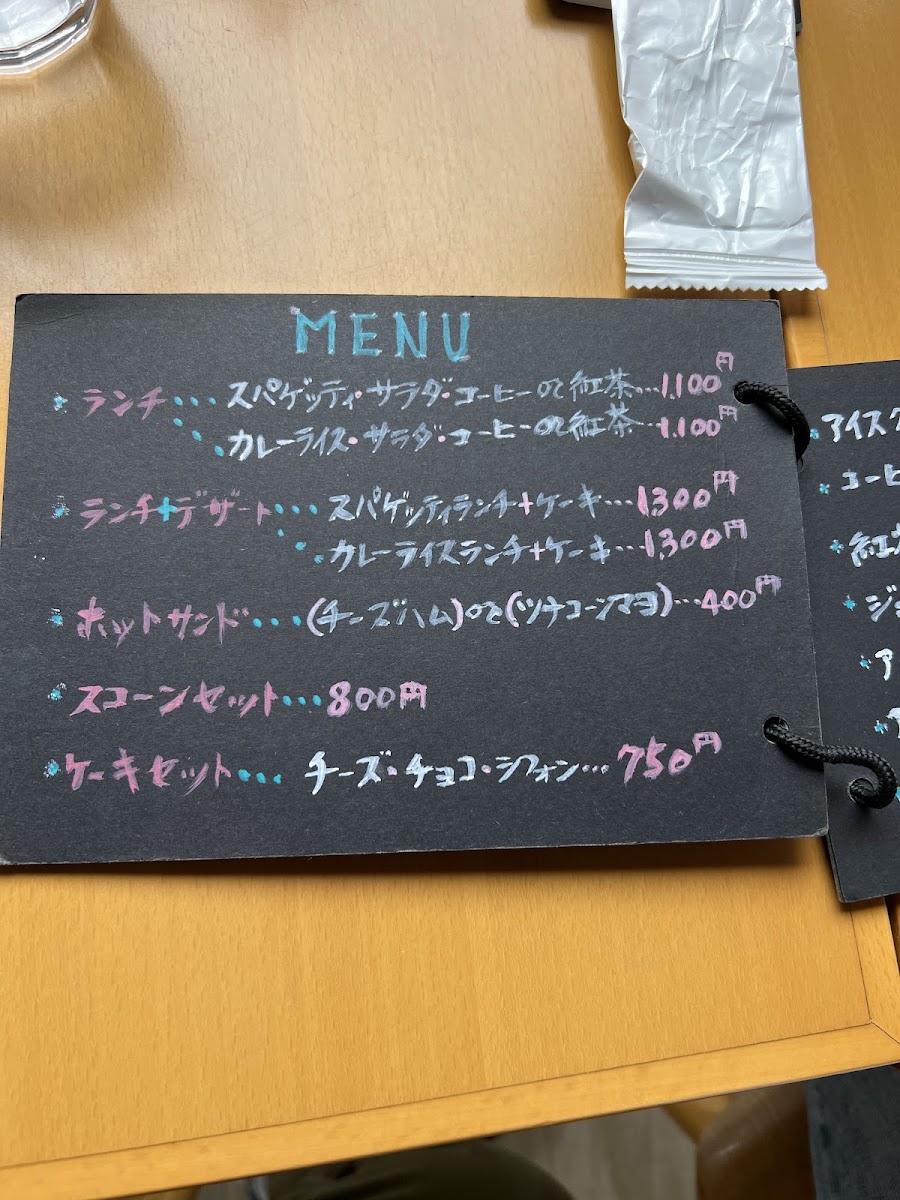 MENU
ランチ・・・スパゲッティ・サラダ・コーヒーor紅茶…1,100円
・・・カレーライス・サラダ・コーヒーor紅茶…1,100円
ランチ+デザート・・・スパゲッティランチ+ケーキ…1,300円
・・・カレーライスランチ+ケーキ…1,300円
ホットサンド・・・(チーズハム)or(ツナコーンマヨ)…400円
スコーンセット・・・800円
ケーキセット・・・チーズ・チョコ・シフォン…750円
アイス
コーヒ
紅
ジ
ア